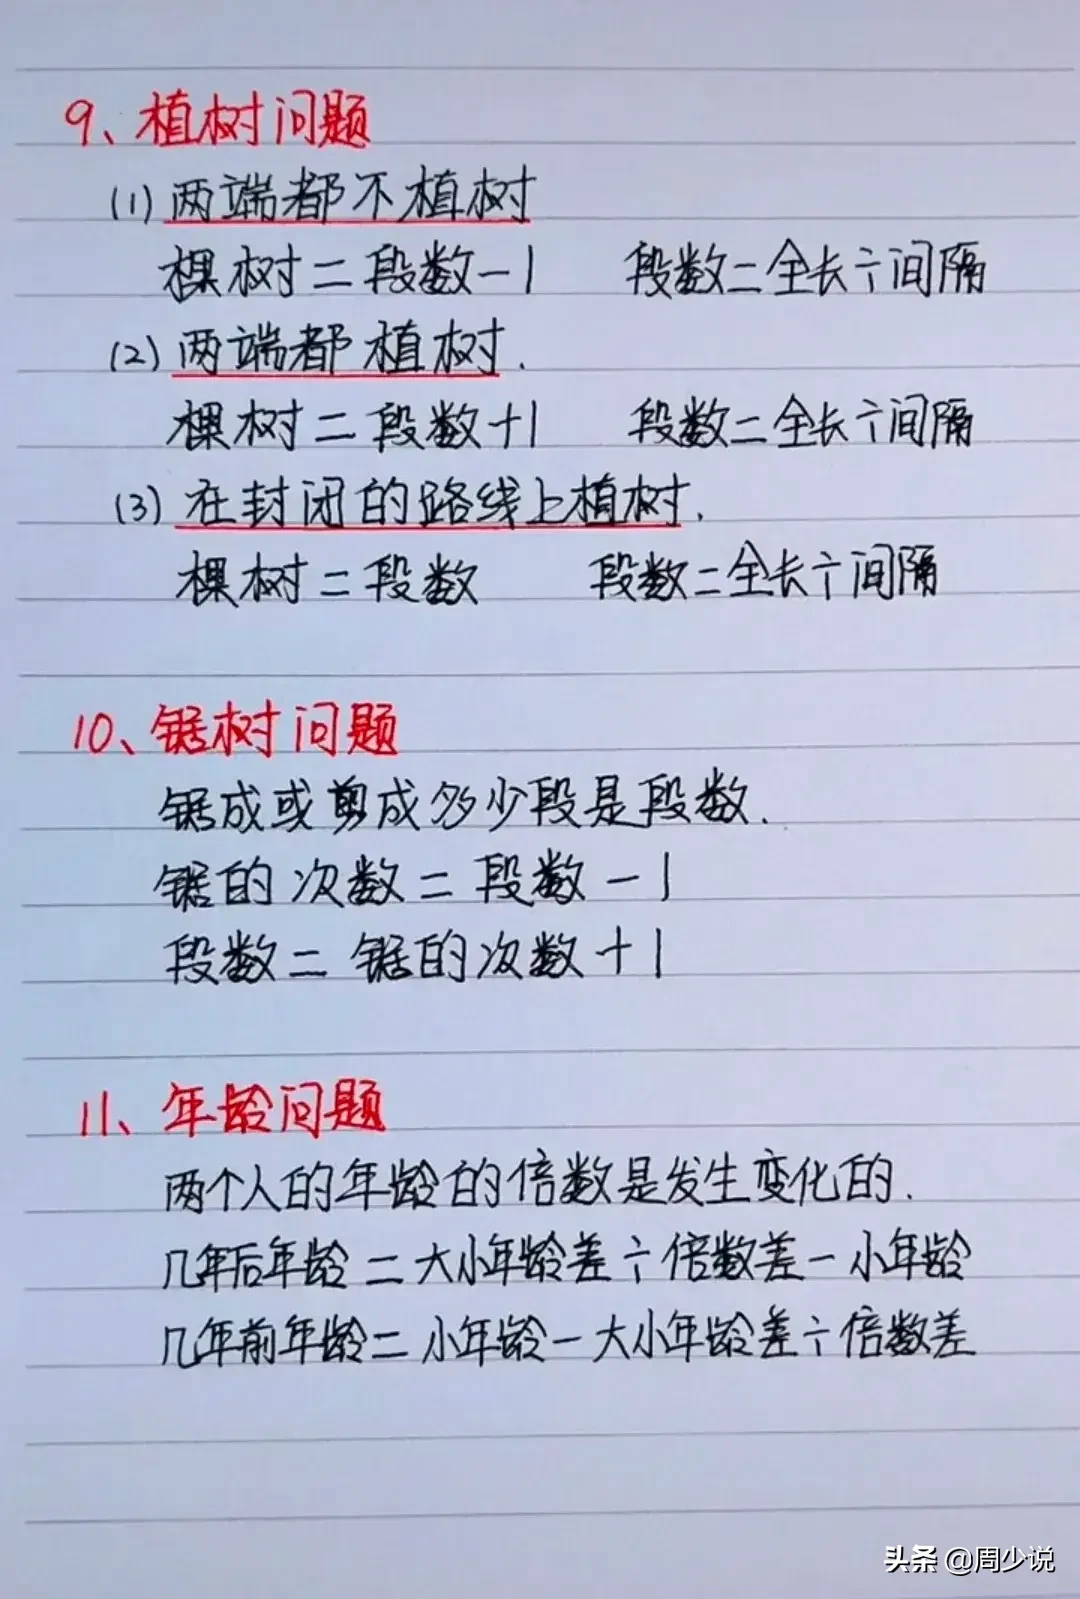 9、植树问题
(1)两端都不植树
棵树=段数-1 段数=全长÷间隔
(2)两端都植树.
棵树=段数+1 段数=全长÷间隔
(3)在封闭的路线上植树.
棵树=段数 段数=全长÷间隔
10、锯树问题
锯成或剪成多少段是段数.
锯的次数=段数-1
段数=锯的次数+1
11、年龄问题
两个人的年龄的倍数是发生变化的.
几年后年龄=大小年龄差÷倍数差-小年龄
几年前年龄=小年龄-大小年龄差÷倍数差
头条 @周少说